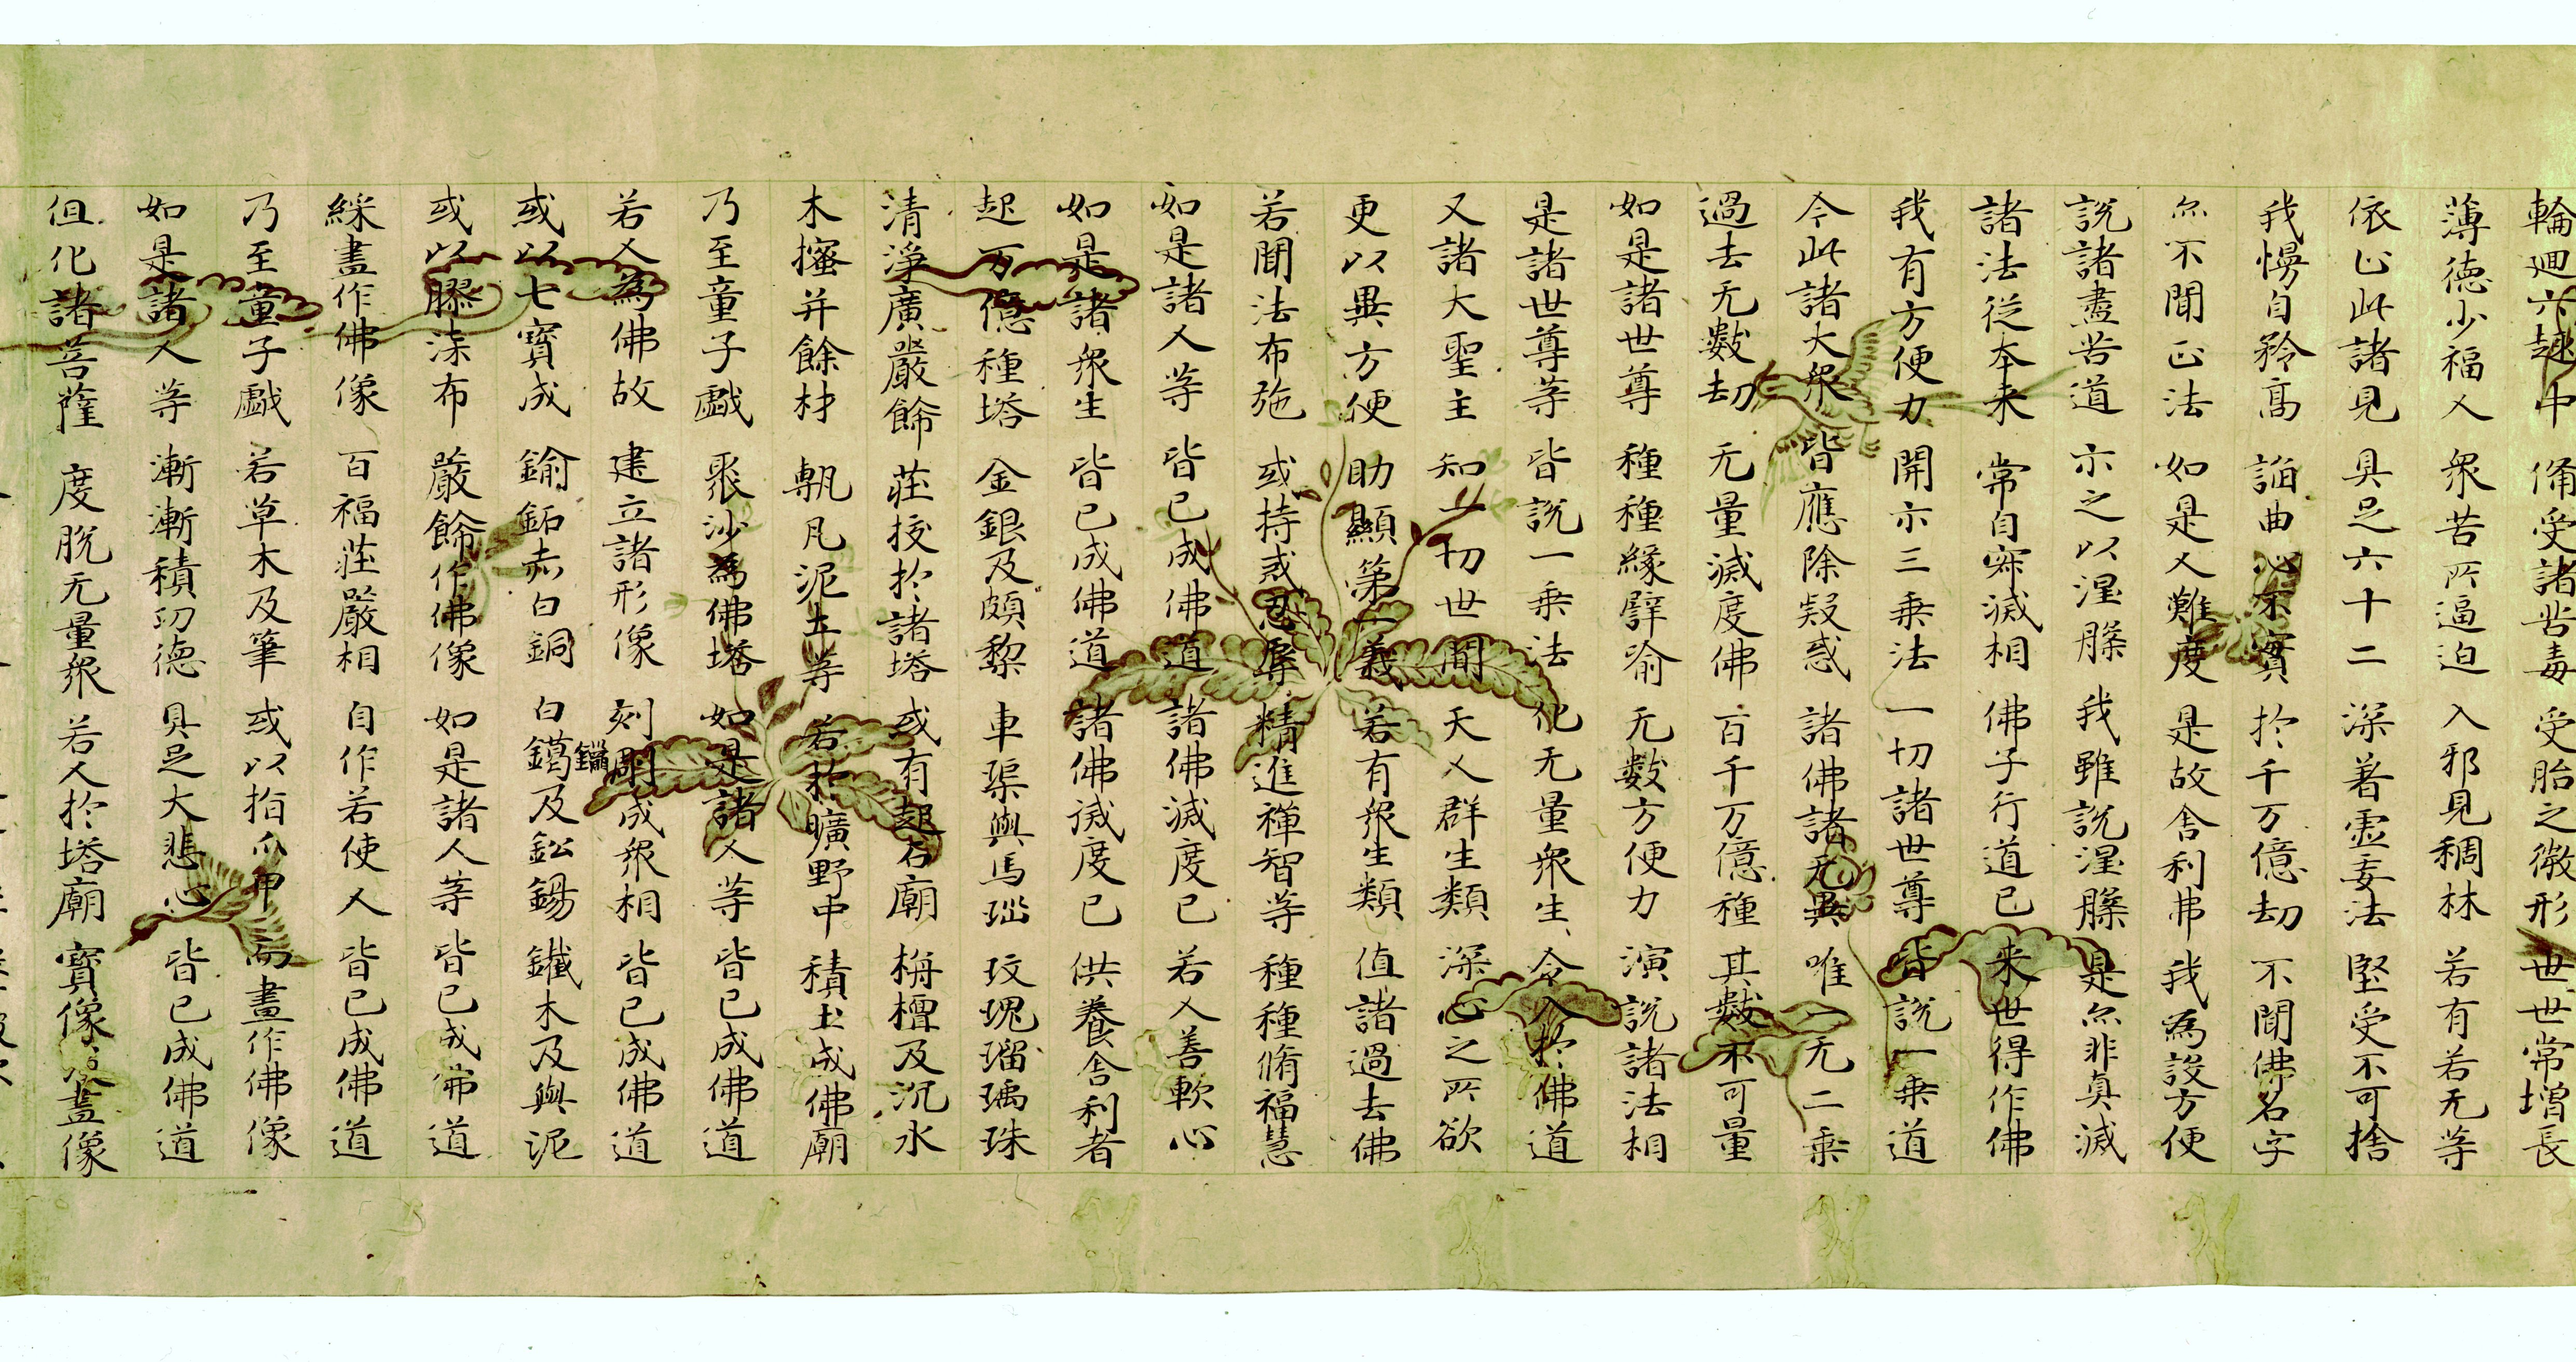 輪廻六趣中 備受諸苦毒 受胎之微形 世世常增長
薄德少福人 衆苦所逼迫 入邪見稠林 若有若无等
依止此諸見 具足六十二 深著虛妄法 堅受不可捨
我慢自矜高 諂曲心不實 於千万億劫 不聞佛名字
亦不聞正法 如是人難度 是故舍利弗 我為設方便
說諸盡苦道 示之以涅槃 我雖說涅槃 是亦非真滅
諸法從本来 常自寂滅相 佛子行道已 来世得作佛
我有方便力 開示三乗法 一切諸世尊 皆說一乗道
今此諸大衆 皆應除疑惑 諸佛語无異 唯一无二乗
過去无數劫 无量滅度佛 百千万億種 其數不可量
如是諸世尊 種種緣譬喻 无數方便力 演說諸法相
是諸世尊等 皆說一乗法 化无量衆生 令入於佛道
又諸大聖主 知一切世間 天人群生類 深心之所欲
更以異方便 助顯第一義 若有衆生類 值諸過去佛
若聞法布施 或持戒忍辱 精進禪智等 種種脩福慧
如是諸人等 皆已成佛道 諸佛滅度已 若人善軟心
如是諸衆生 皆已成佛道 諸佛滅度已 供養舍利者
起万億種塔 金銀及頗黎 車璖與馬瑙 玫瑰瑠璃珠
清淨廣嚴餝 莊挍於諸塔 或有起石廟 栴檀及沉水
木櫁并餘材 甎瓦泥土等 若於曠野中 積土成佛廟
乃至童子戲 聚沙為佛塔 如是諸人等 皆已成佛道
若人為佛故 建立諸形像 刻雕成衆相 皆已成佛道
或以七寶成 鍮鉐赤白銅 白鑞及鈆錫 鐵木及與泥
或以膠漆布 嚴餝作佛像 如是諸人等 皆已成佛道
綵畫作佛像 百福莊嚴相 自作若使人 皆已成佛道
乃至童子戲 若草木及筆 或以指爪甲 而畫作佛像
如是諸人等 漸漸積功德 具足大悲心 皆已成佛道
但化諸菩薩 度脫无量衆 若人於塔廟 寶像及畫像